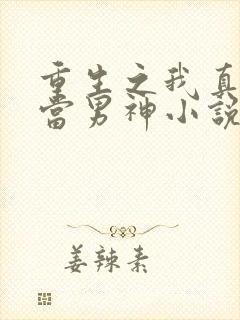 重生之我真
当男神小说
姜辣素